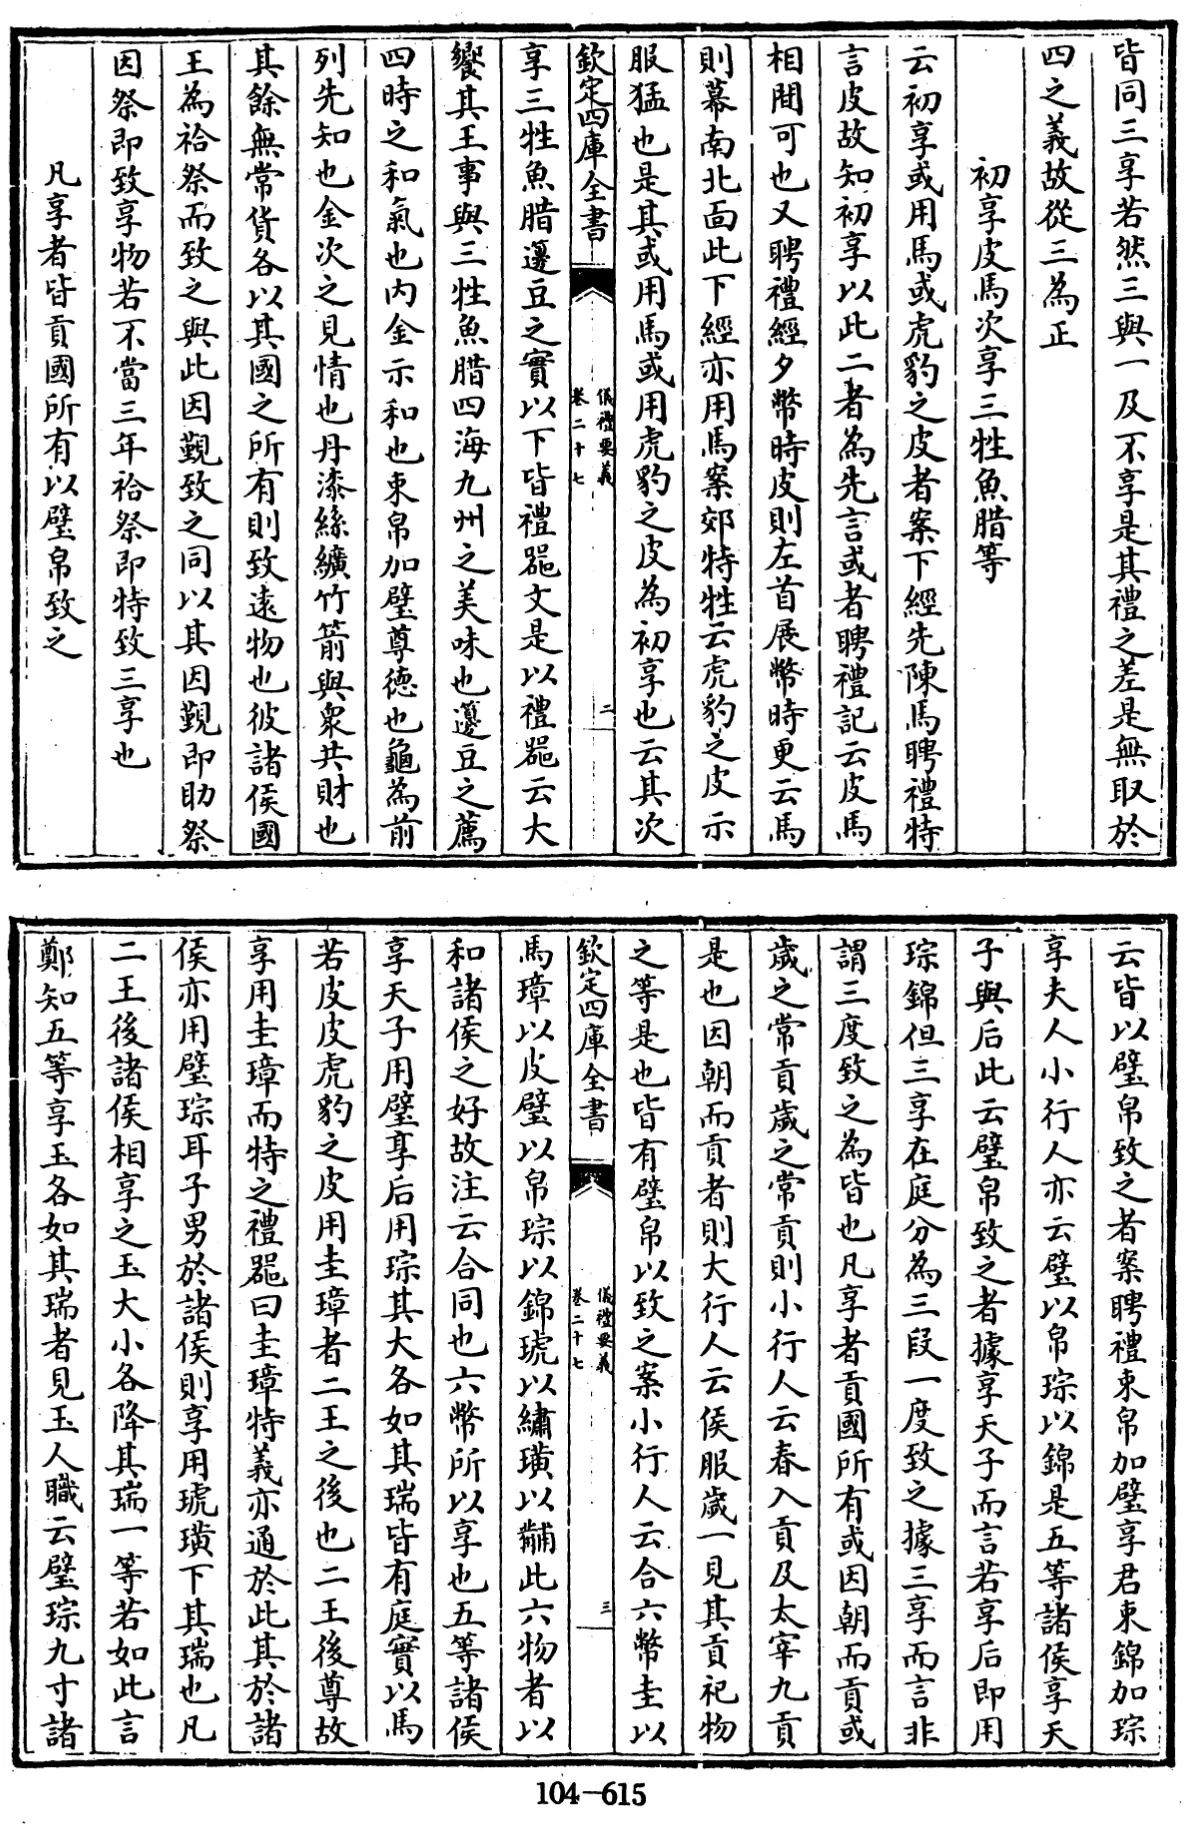 皆同三享若然三與一及不享是其禮之差是無取於
四之義故從三為正
初享皮馬次享三牲魚腊等
云初享或用馬或虎豹之皮者案下經先陳馬聘禮特
言皮故知初享以此二者為先言或者聘禮記云皮馬
相閒可也又聘禮經夕幣時皮則左首展幣時更云馬
則幕南北面此下經亦用馬案郊特牲云虎豹之皮示
服猛也是其或用馬或用虎豹之皮為初享也云其次
欽定四庫全書
儀禮要義
卷二十七
二
享三牲魚腊籩豆之實以下皆禮器文是以禮器云大
饗其王事與三牲魚腊四海九州之美味也籩豆之薦
四時之和氣也內金示和也束帛加璧尊德也龜為前
列先知也金次之見情也丹漆絲纊竹箭與衆共財也
其餘無常貨各以其國之所有則致遠物也彼諸侯國
王為祫祭而致之與此因覲致之同以其因覲即助祭
因祭即致享物若不當三年祫祭即特致三享也
凡享者皆貢國所有以璧帛致之
云皆以璧帛致之者案聘禮束帛加璧享君束錦加琮
享夫人小行人亦云璧以帛琮以錦是五等諸侯享天
子與后此云璧帛致之者據享天子而言若享后即用
琮錦但三享在庭分為三段一度致之據三享而言非
謂三度致之為皆也凡享者貢國所有或因朝而貢或
歲之常貢歲之常貢則小行人云春入貢及太宰九貢
是也因朝而貢者則大行人云侯服歲一見其貢祀物
之等是也皆有璧帛以致之案小行人云合六幣圭以
欽定四庫全書
儀禮要義
卷二十七
三
馬璋以皮璧以帛琮以錦琥以繡璜以黼此六物者以
和諸侯之好故注云合同也六幣所以享也五等諸侯
享天子用璧享后用琮其大各如其瑞皆有庭實以馬
若皮皮虎豹之皮用圭璋者二王之後也二王後尊故
享用圭璋而特之禮器曰圭璋特義亦通於此其於諸
侯亦用璧琮耳子男於諸侯則享用琥璜下其瑞也凡
二王後諸侯相享之玉大小各降其瑞一等若如此言
鄭知五等享玉各如其瑞者見玉人職云璧琮九寸諸
104-615